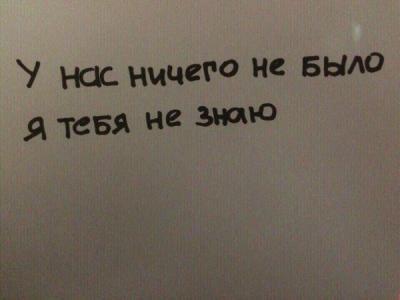 У нас ничего не было
я тебя не знаю